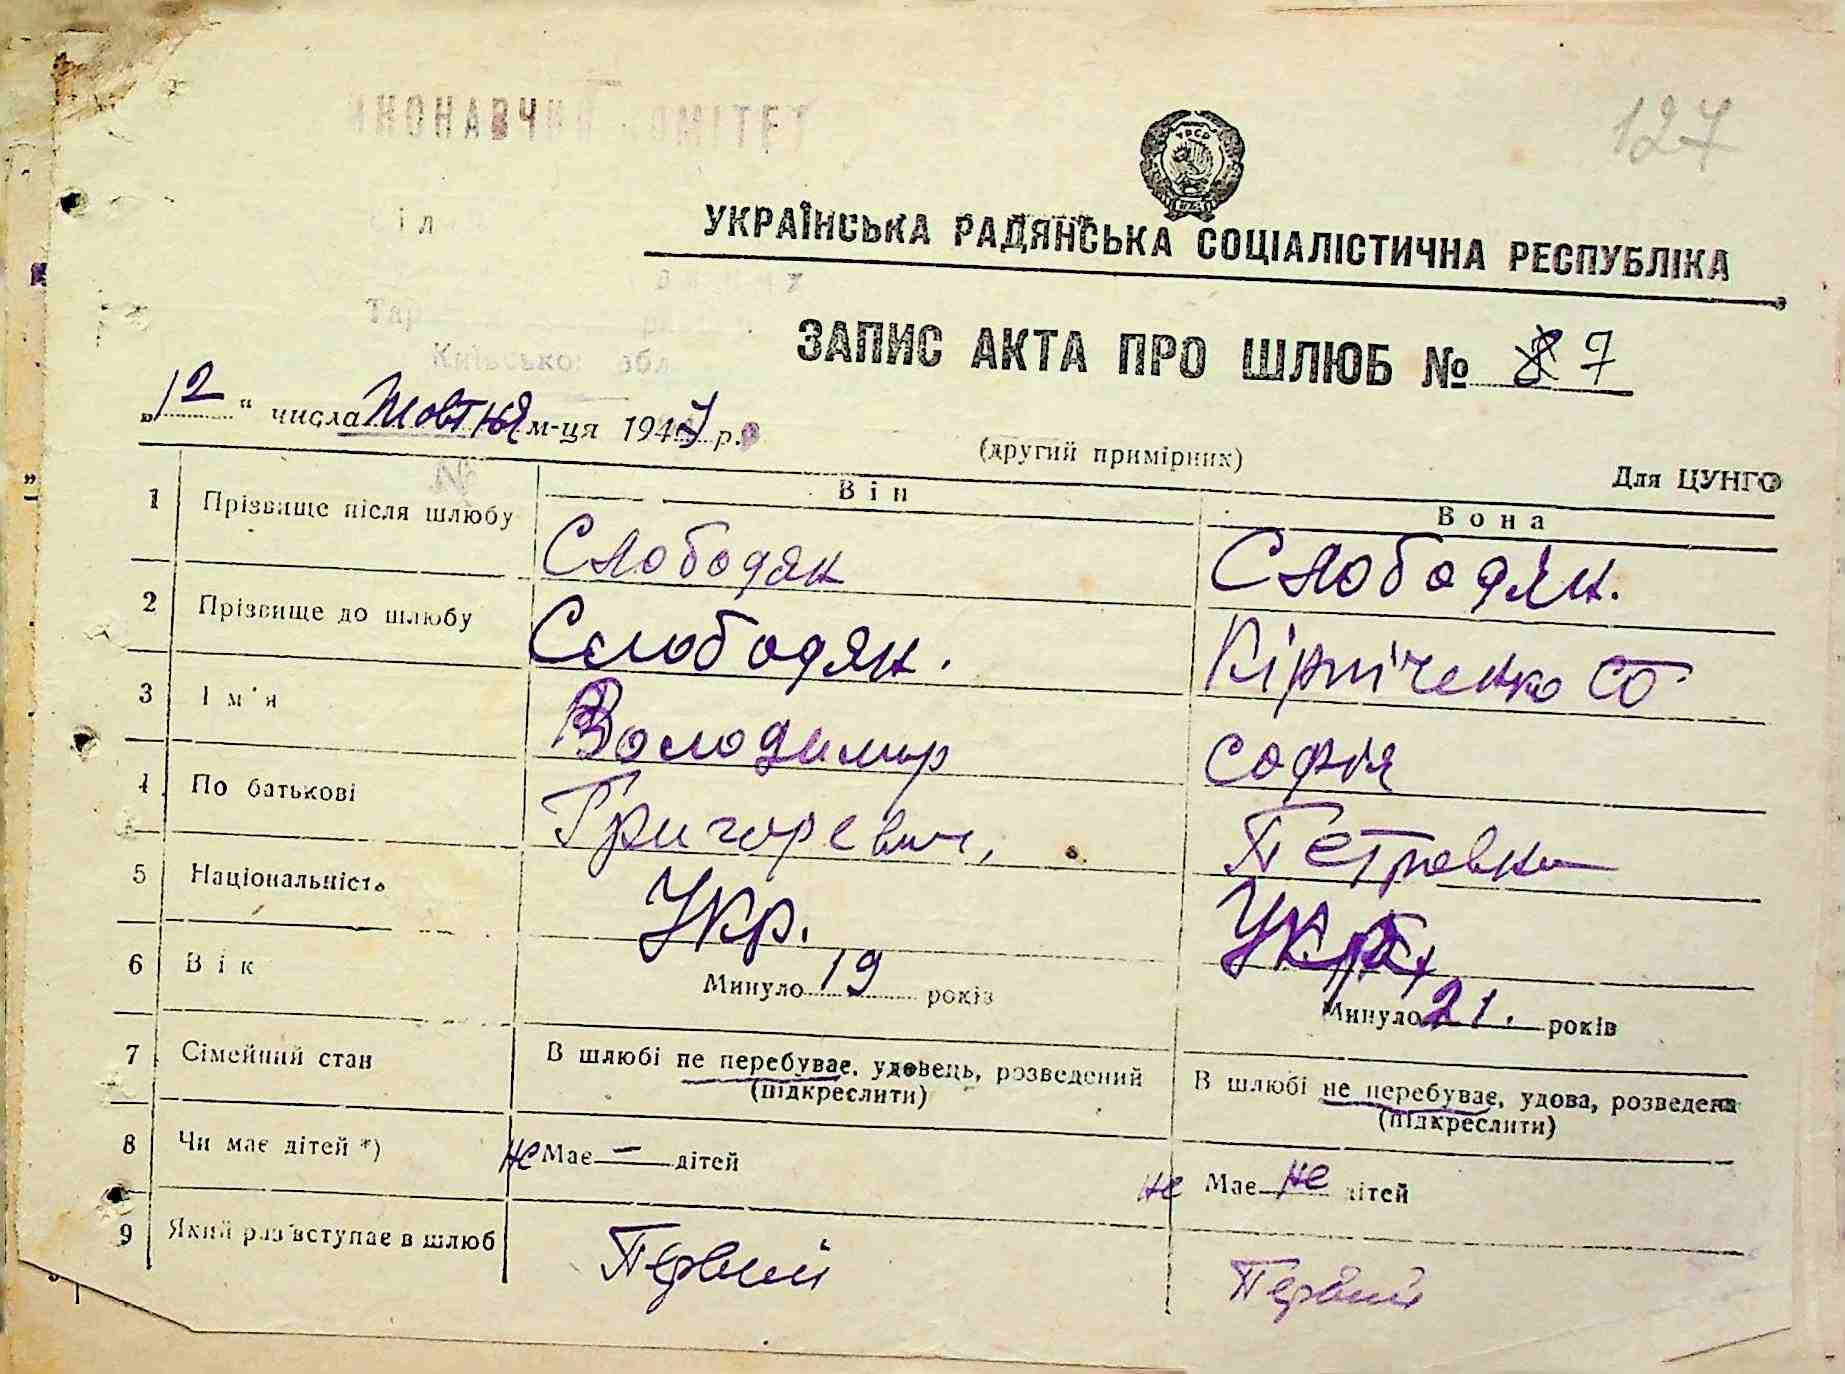 127
КОМІТЕТ
УРСР
УКРАЇНСЬКА РАДЯНСЬКА СОЦІАЛІСТИЧНА РЕСПУБЛІКА
Київської обл.
ЗАПИС АКТА ПРО ШЛЮБ № 7
„12“ числа Жовтня м-ця 1947 р.
(другий примірник)
Для ЦУНГО
Він Вона
1 Прізвище після шлюбу Слободян Слободян.
2 Прізвище до шлюбу Слободян. Кірпіченко
3 Ім'я Володимир Софія
4 По батькові Григоревич, Петровна
5 Національність Укр. Укр.
6 Вік Минуло 19 років Минуло 21. років
7 Сімейний стан В шлюбі не перебуває, удовець, розведений (підкреслити) В шлюбі не перебуває, удова, розведена (підкреслити)
8 Чи має дітей *) не Має — дітей не Має не дітей
9 Який раз вступає в шлюб Первий Первий